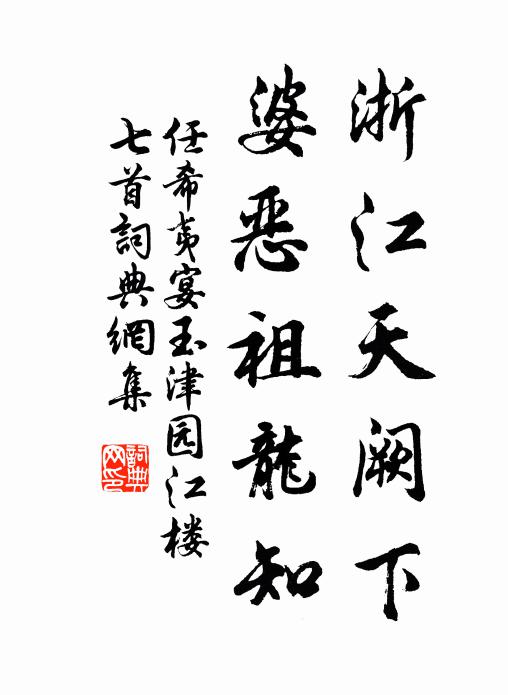 浙江天阙下
婆恶祖龍知
任希夷宴玉津园江楼
七首詞典網集
詞典网印